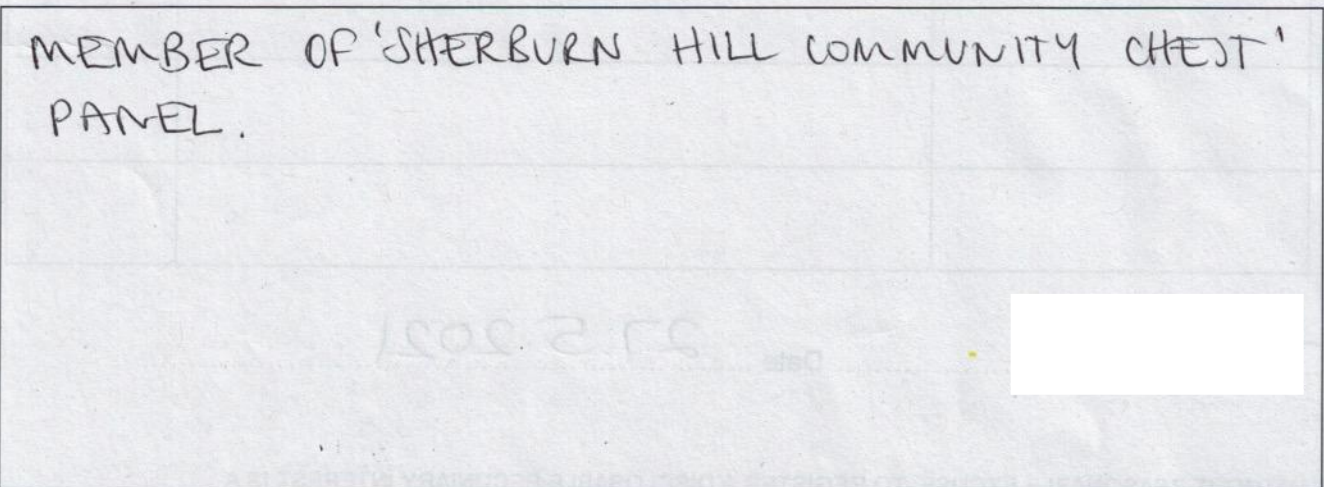 MEMBER OF 'SHERBURN HILL COMMUNITY CHEST'
PANEL.